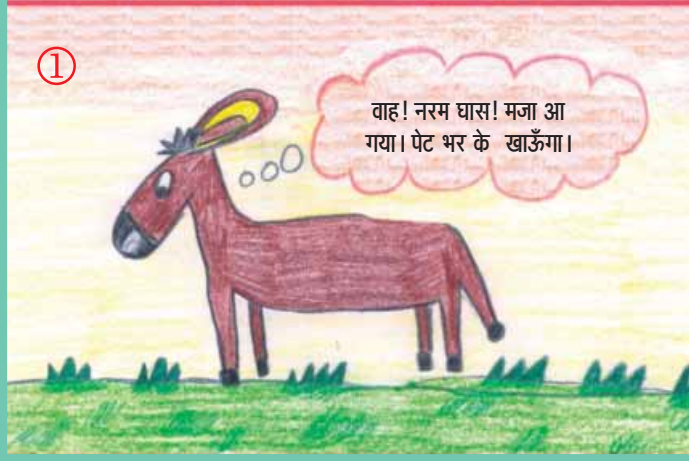 ①
वाह! नरम घास! मजा आ
गया। पेट भर के खाऊँगा।